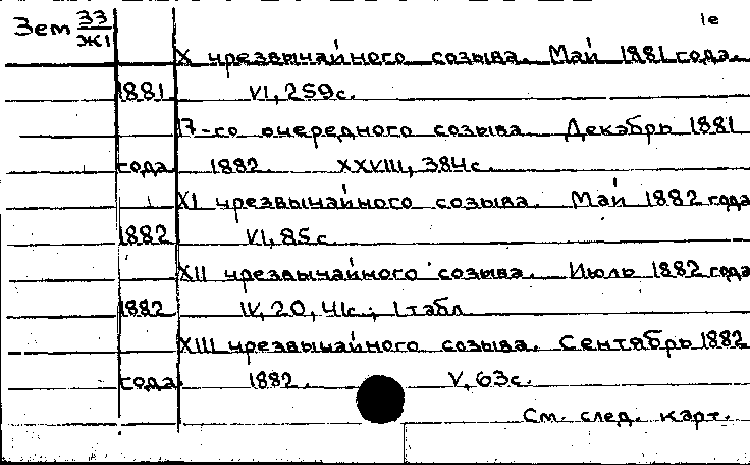 Зем 33/Ж1 1е
X чрезвычайного созыва. Май 1881 года.
1881 VI, 259с.
17-го очередного созыва. Декабрь 1881
года. 1882. XXVIII, 384с.
XI чрезвычайного созыва. Май 1882 года
1882 VI, 85с.
XII чрезвычайного созыва. Июль 1882 года
1882 IV, 20, 41с.; 1 табл.
XIII чрезвычайного созыва. Сентябрь 1882
года 1882. V, 63с.
См. след. карт.